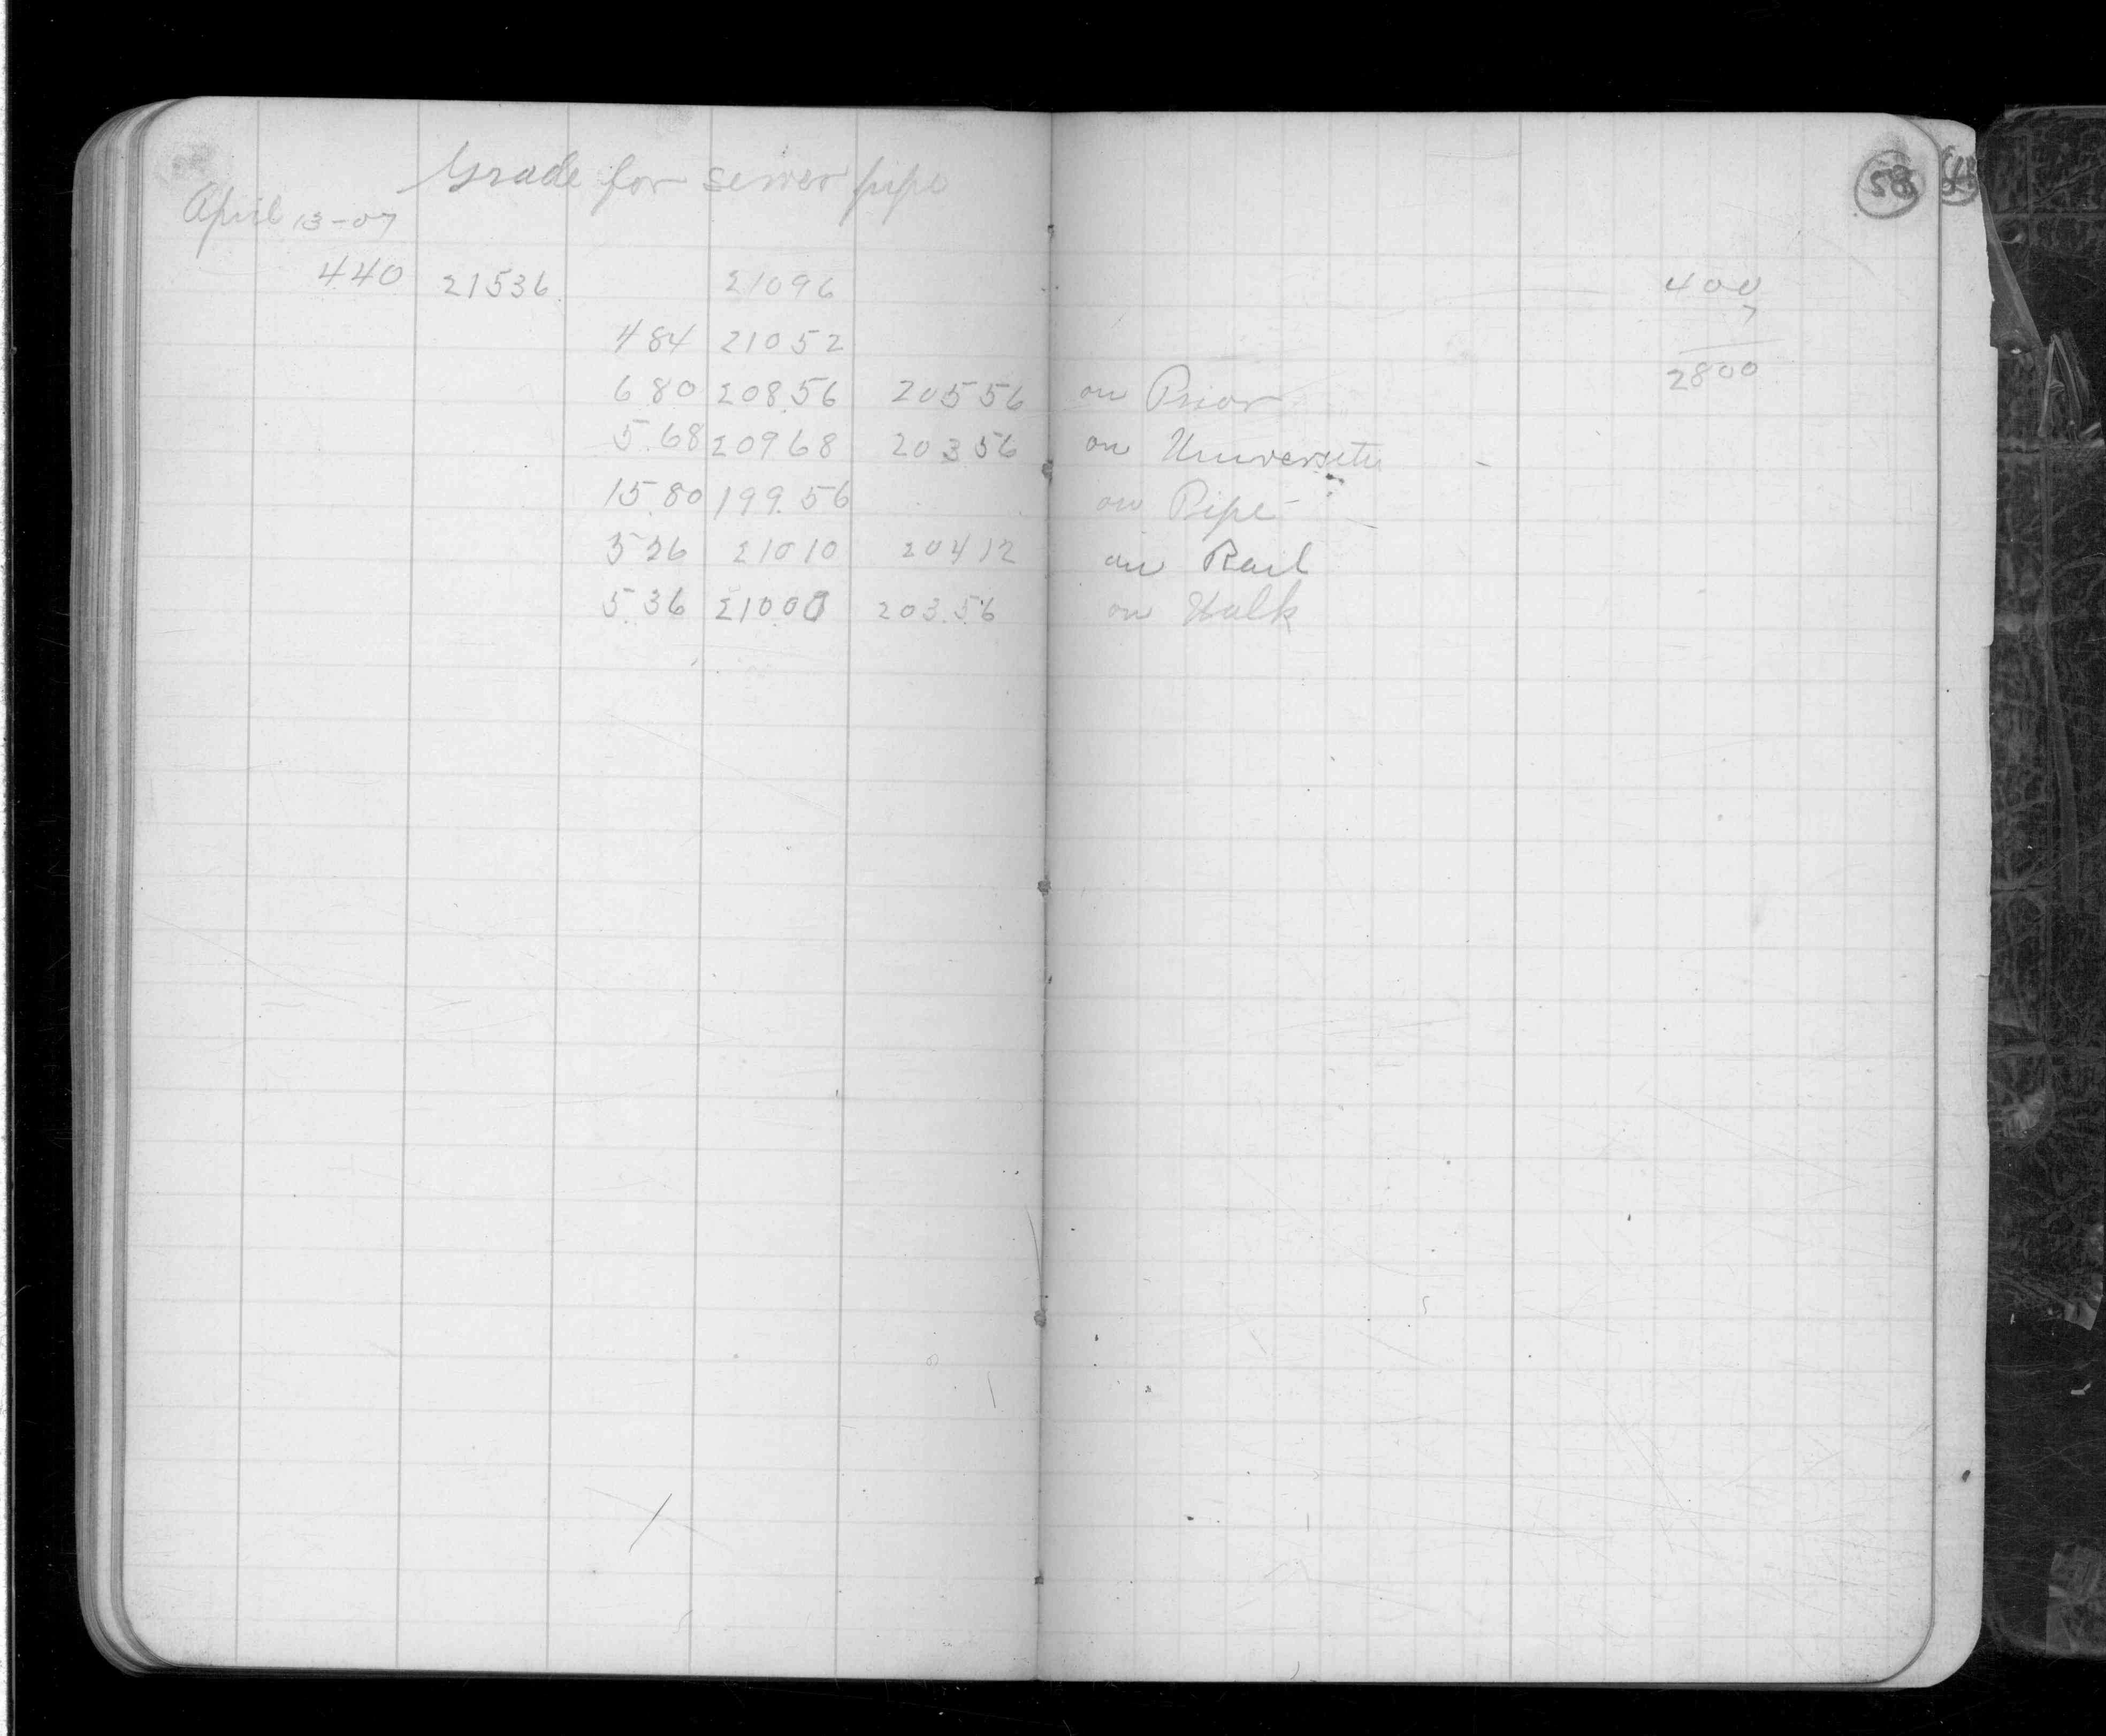 Grade for sewer pipe
April 13-07
440 21536 21096
484 21052
680 208.56 20556 on Prior
5.68 20968 20356 on University
15.80 199.56 on Pipe
526 21010 20412 on Rail
5.36 21000 203.56 on Walk
58
400
7
2800